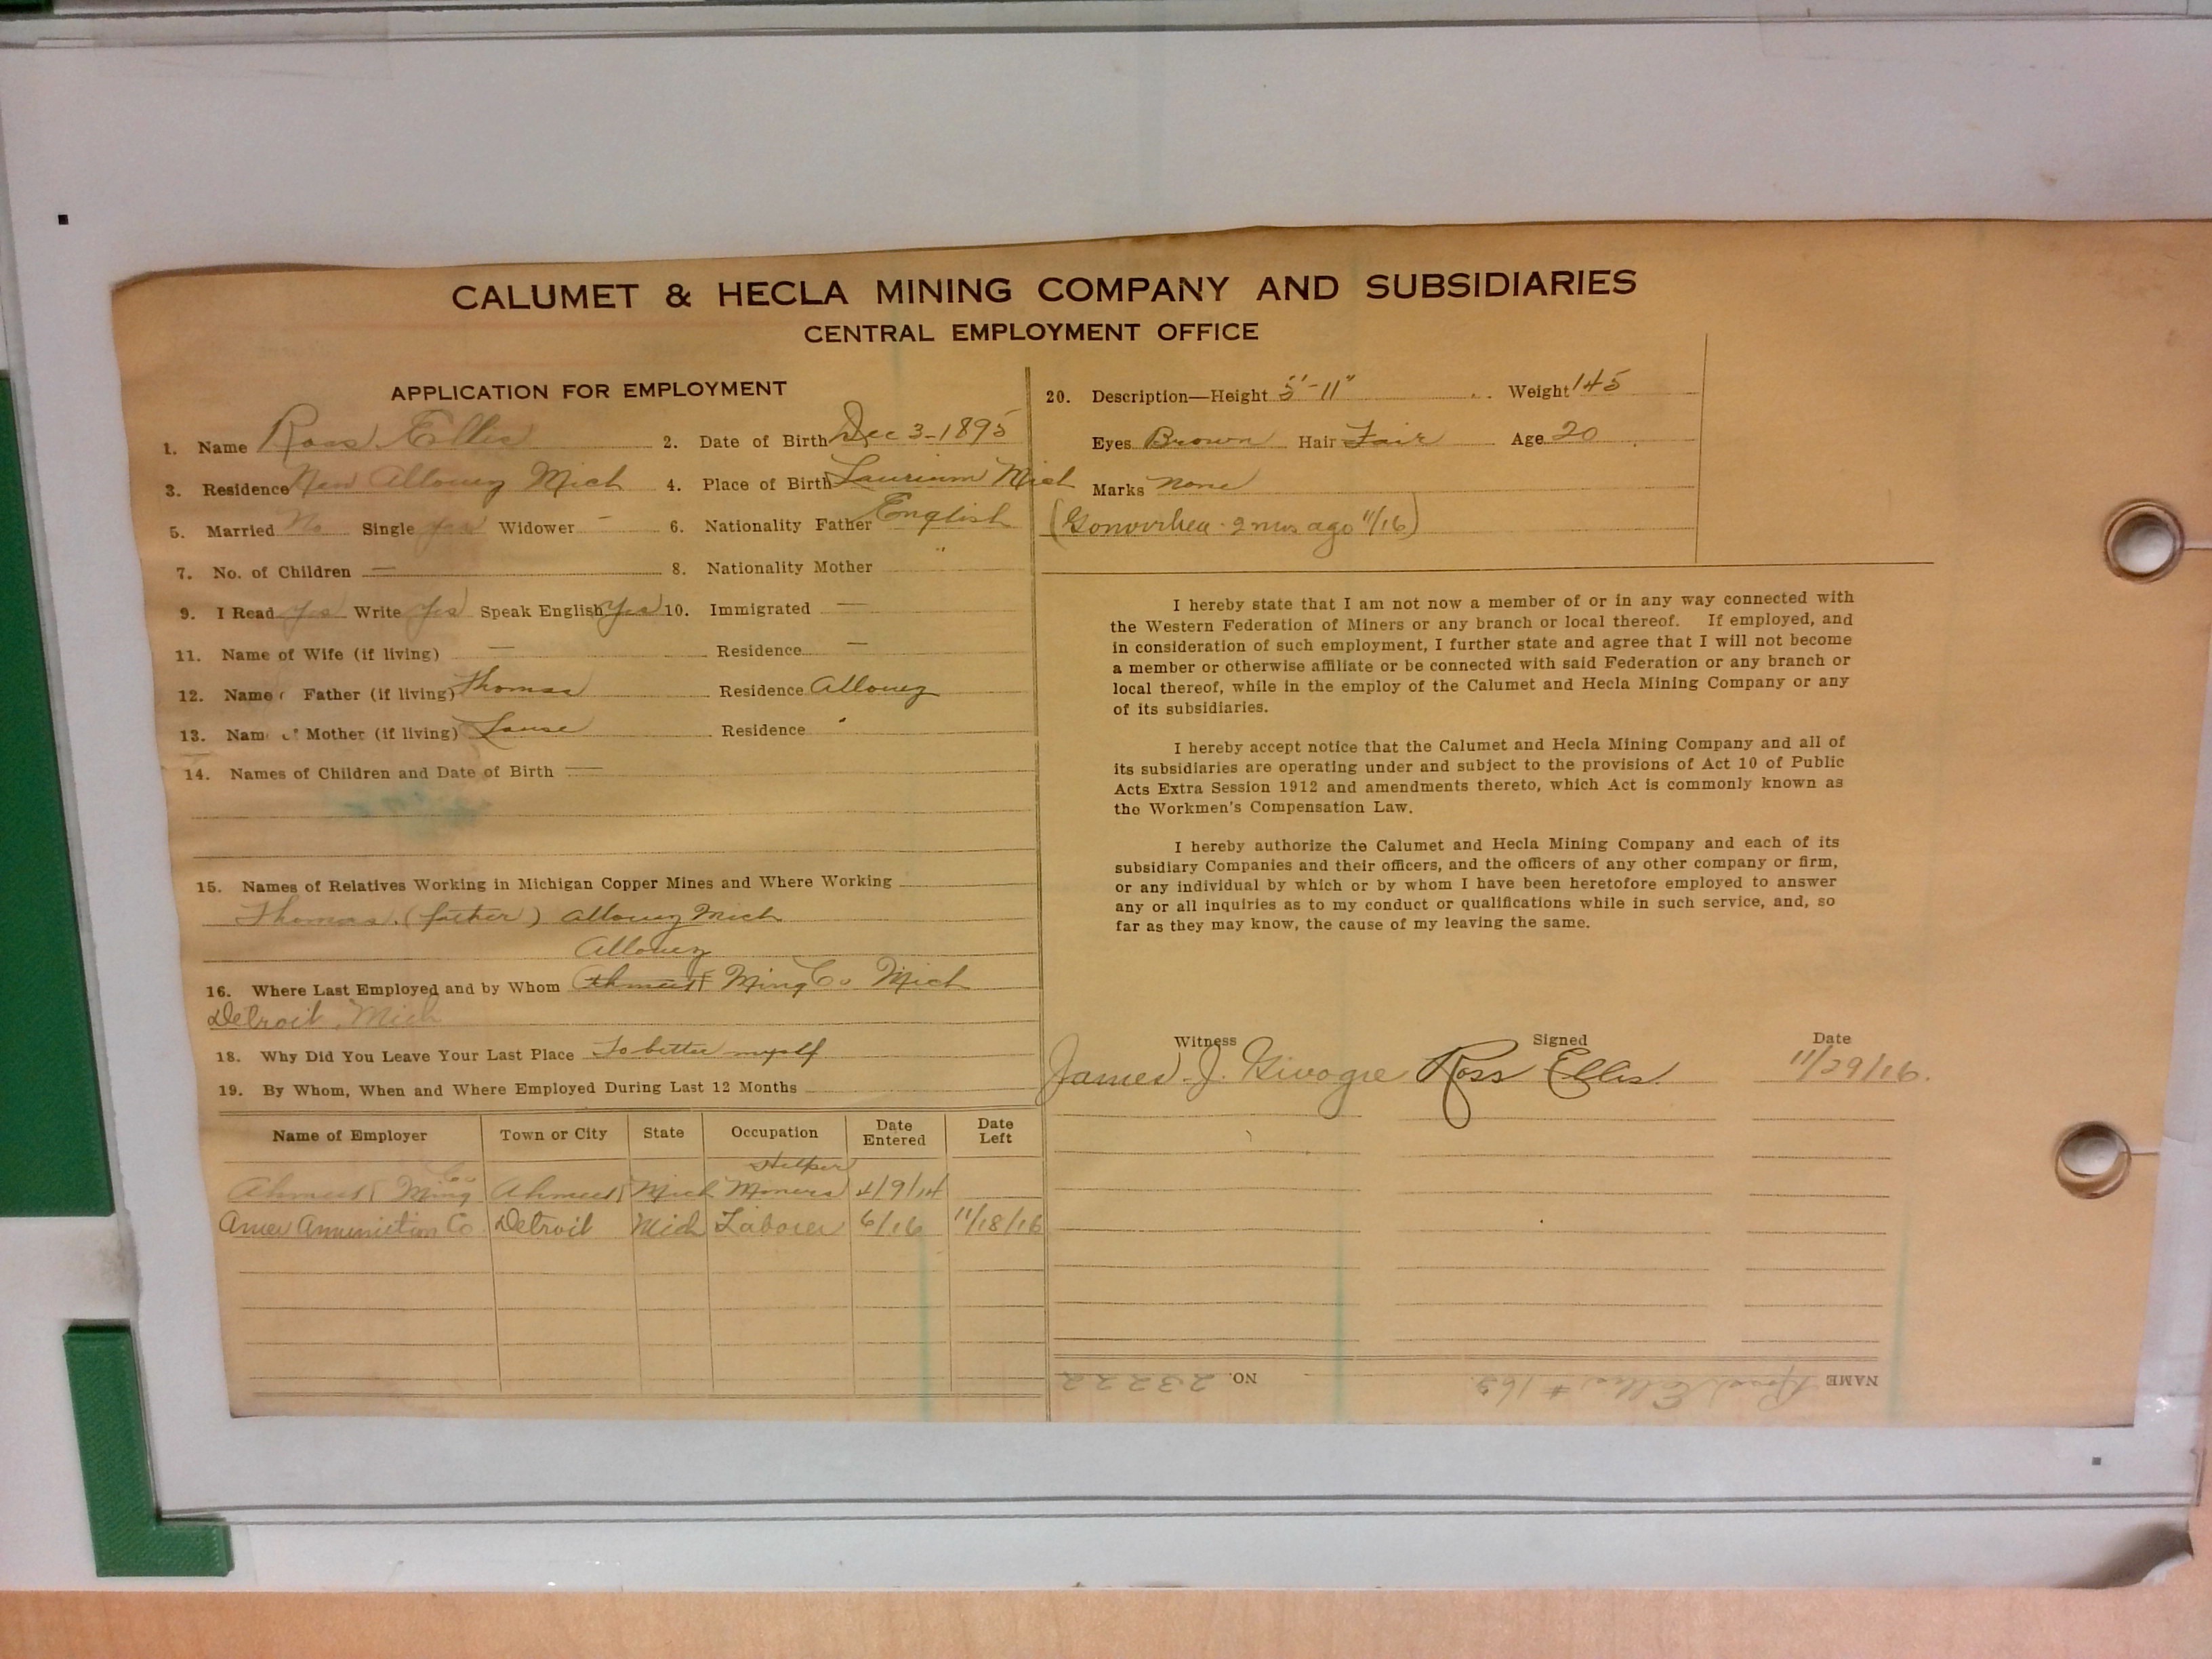 CALUMET & HECLA MINING COMPANY AND SUBSIDIARIES
CENTRAL EMPLOYMENT OFFICE
APPLICATION FOR EMPLOYMENT
1. Name Ross Ellis 2. Date of Birth Dec 3-1895
3. Residence New Allouez Mich 4. Place of Birth Laurium Mich
5. Married No Single Yes Widower — 6. Nationality Father English
7. No. of Children — 8. Nationality Mother "
9. I Read Yes Write Yes Speak English Yes 10. Immigrated —
11. Name of Wife (if living) — Residence —
12. Name Father (if living) Thomas Residence Allouez
13. Nam of Mother (if living) Residence "
14. Names of Children and Date of Birth —
15. Names of Relatives Working in Michigan Copper Mines and Where Working
Thomas. (father) Allouez Mich
Allouez
16. Where Last Employed and by Whom Ahmeek Ming Co Mich
Detroit, Mich
18. Why Did You Leave Your Last Place To better myself
19. By Whom, When and Where Employed During Last 12 Months
Name of Employer Town or City State Occupation Date Entered Date Left
Helper
Ahmeek Ming Co Ahmeek Mich Miners 4/9/14
Amer Ammunition Co Detroit Mich Laborer 6/16 11/18/16
20. Description—Height 5'-11" Weight 145
Eyes Brown Hair Fair Age 20
Marks None
(Gonorrhea - 2 mos ago 11/16)
I hereby state that I am not now a member of or in any way connected with
the Western Federation of Miners or any branch or local thereof. If employed, and
in consideration of such employment, I further state and agree that I will not become
a member or otherwise affiliate or be connected with said Federation or any branch or
local thereof, while in the employ of the Calumet and Hecla Mining Company or any
of its subsidiaries.
I hereby accept notice that the Calumet and Hecla Mining Company and all of
its subsidiaries are operating under and subject to the provisions of Act 10 of Public
Acts Extra Session 1912 and amendments thereto, which Act is commonly known as
the Workmen's Compensation Law.
I hereby authorize the Calumet and Hecla Mining Company and each of its
subsidiary Companies and their officers, and the officers of any other company or firm,
or any individual by which or by whom I have been heretofore employed to answer
any or all inquiries as to my conduct or qualifications while in such service, and, so
far as they may know, the cause of my leaving the same.
Witness Signed Date
James J. Ross Ellis 11/29/16.
NAME Ross Ellis #163 NO. 23222